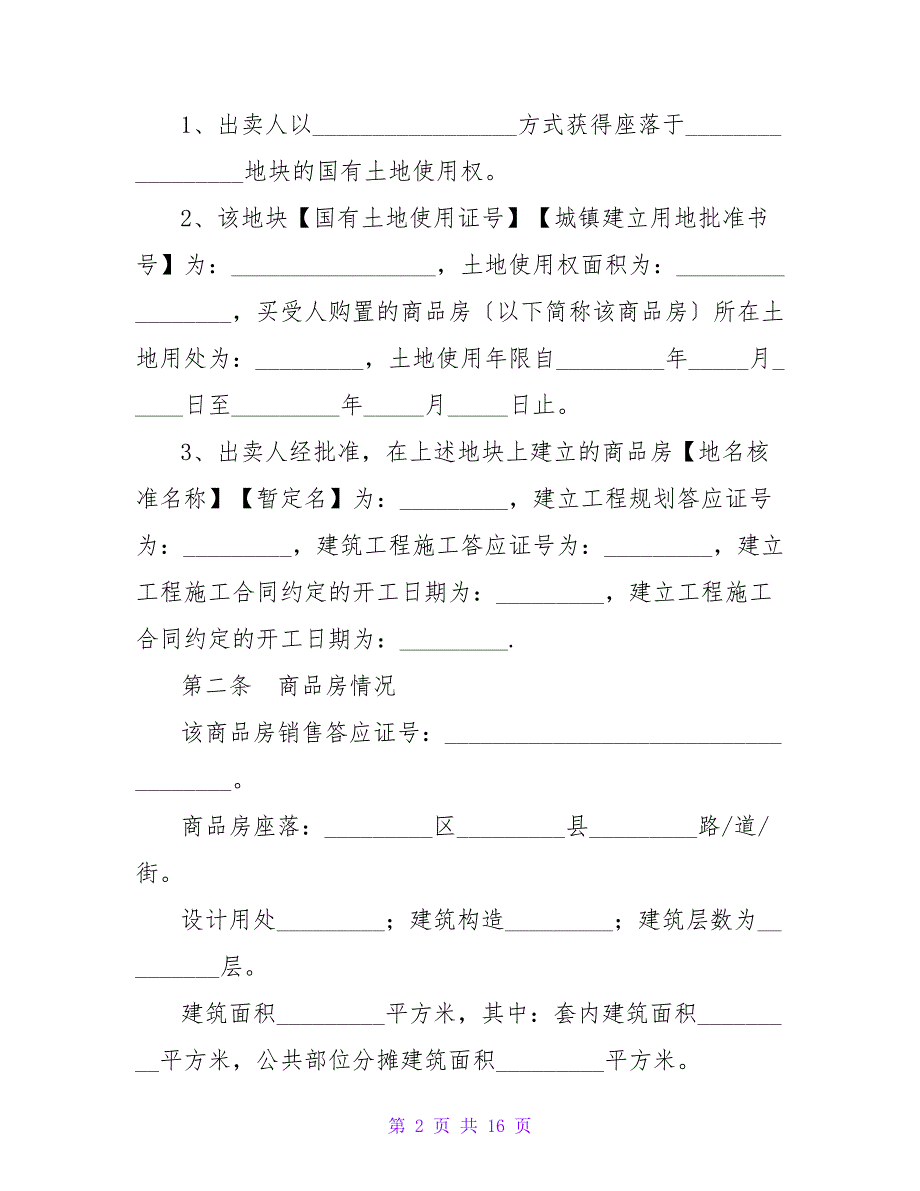 1、出卖人以_________________方式获得座落于________
_________地块的国有土地使用权。
2、该地块【国有土地使用证号】【城镇建立用地批准书
号】为：_________________，土地使用权面积为：_________
________，买受人购置的商品房〔以下简称该商品房〕所在土
地用处为：_________，土地使用年限自_________年_____月_
____日至_________年_____月_____日止。
3、出卖人经批准，在上述地块上建立的商品房【地名核
准名称】【暂定名】为：_________，建立工程规划答应证号
为：_________，建筑工程施工答应证号为：_________，建立
工程施工合同约定的开工日期为：_________，建立工程施工
合同约定的开工日期为：_________.
第二条　商品房情况
该商品房销售答应证号：____________________________
________。
商品房座落：_________区_________县_________路/道/
街。
设计用处_________；建筑构造_________；建筑层数为__
_______层。
建筑面积_________平方米，其中：套内建筑面积_______
__平方米，公共部位分摊建筑面积_________平方米。
第 2 页 共 16 页